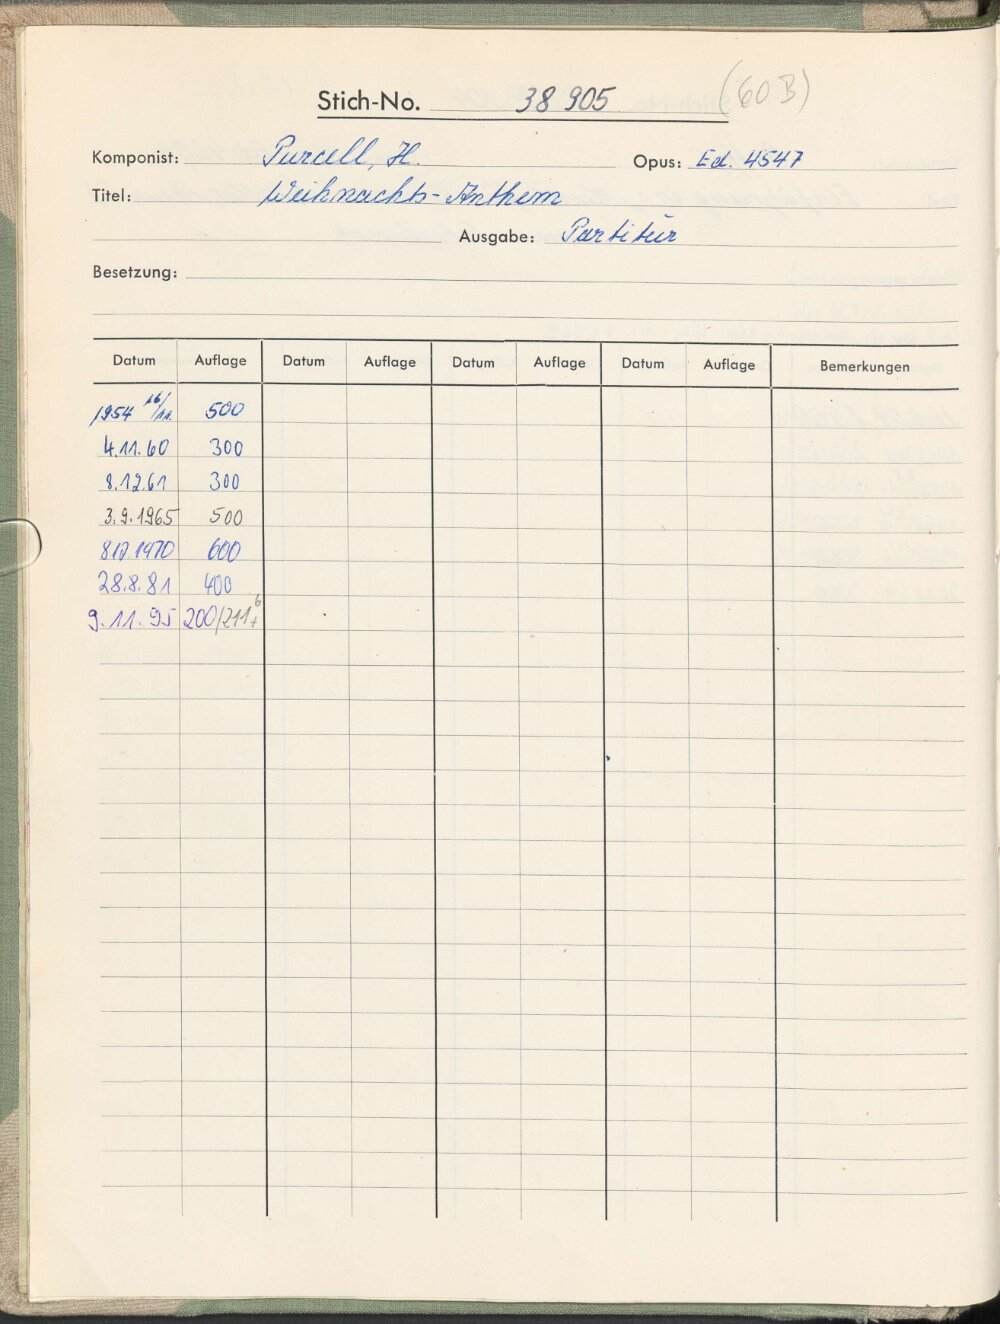 Stich-No. 38 905 (60 B)
Komponist: Purcell, H. Opus: Ed. 4547
Titel: Weihnachts-Anthem
Ausgabe: Partitur
Besetzung:
Datum Auflage Datum Auflage Datum Auflage Datum Auflage Bemerkungen
1954 16/11. 500
4.11.60 300
8.12.61 300
3.9.1965 500
8.12.1970 600
28.8.81 400
9.11.95 200/211